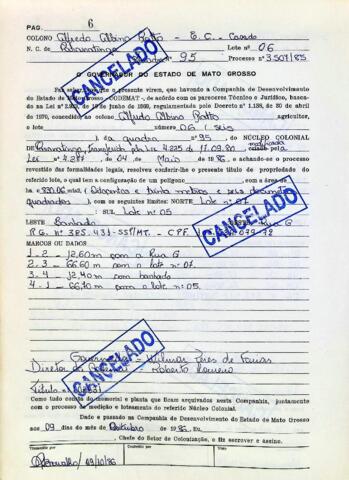 PAG. 6
COLONO Alfredo Albino Ratto - E. C. - Casado
N. C. de Paranatinga Quadra 95 Lote nº 06
Processo nº 3.507/85
O GOVERNADOR DO ESTADO DE MATO GROSSO
Faz saber aos que o presente virem, que havendo a Companhia de Desenvolvimento
do Estado de Mato Grosso - CODEMAT -, de acordo com os pareceres Técnico e Jurídico, basea-
do na Lei nº de junho de regulamentada pelo Decreto n.º 1.138, de 20 de abril
de 1970, concedido ao colono, Alfredo Albino Ratto agricultor,
o lote número 06 (seis
) da quadra nº 95, do NÚCLEO COLONIAL
de Paranatinga, transferido p/ Lei 4.225 de 17.09.80 modificada
Lei 4.287, de 04 de Maio de e achando-se o processo
revestido das formalidades legais, resolvem conferir-lhe o presente título de propriedade do
referido lote, o qual tem a configuração de um polígono com a área de
m2
quadrados), com os seguintes limites: NORTE Lote nº 07
SUL Lote nº 05
LESTE Banhado Rua G
R.G. nº 385.431-SSP/MT. - CPF.
MARCOS OU DADOS
1 - 2 - 12,60m com a Rua G
2 - 3 - 66,60 m com o lote nº 07.
3 - 4 - 12,40m com banhado
4 - 1 - com o lote nº 05.
Governador - Wilmar Peres de Farias
Diretor
Título
Como tudo consta do memorial e planta que ficam arquivados nesta Companhia, juntamente
com o processo de medição e loteamento do referido Núcleo Colonial.
Dado e passado na Companhia de Desenvolvimento do Estado de Mato Grosso
aos 09 dias do mês de Outubro de 1986. Eu,
, Chefe do Setor de Colonização, o fiz escrever e assino.
09/10/86
CANCELADO
CANCELADO
CANCELADO
CANCELADO